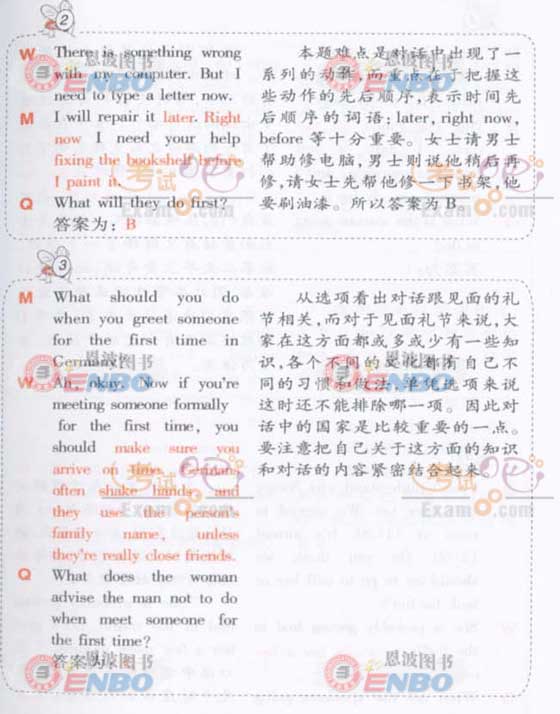 2
W There is something wrong
with my computer. But I
need to type a letter now.
M I will repair it later. Right
now I need your help
fixing the bookshelf before
I paint it.
Q What will they do first?
答案为：B
本题难点是对话中出现了一
系列的动作，而重点在于把握这
些动作的先后顺序，表示时间先
后顺序的词语：later, right now,
before 等十分重要。女士请男士
帮助修电脑，男士则说他稍后再
修，请女士先帮他修一下书架，他
要刷油漆。所以答案为 B
3
M What should you do
when you greet someone
for the first time in
Germany?
W Ah, okay. Now if you're
meeting someone formally
for the first time, you
should make sure you
arrive on time. Germans
often shake hands and
they use the person's
family name, unless
they're really close friends.
Q What does the woman
advise the man not to do
when meet someone for
the first time?
答案为：
从选项看出对话跟见面的礼
节相关，而对于见面礼节来说，大
家在这方面都或多或少有一些知
识，各个不同的文化都有自己不
同的习惯和做法，单从选项来说
这时还不能排除哪一项。因此对
话中的国家是比较重要的一点。
要注意把自己关于这方面的知识
和对话的内容紧密结合起来。
恩波图书
ENBO
恩波图书
ENBO
考试吧
Exam8.com
考试吧
Exam8.com
恩波图书
ENBO
恩波图书
ENBO
考试吧
Exam8.com
考试吧
Exam8.com
恩波图书
ENBO
恩波图书
ENBO